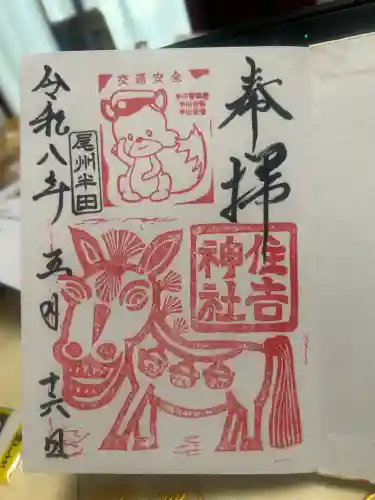 奉拝
住吉
神社
交通安全
尾州半田
令和八年
五月
十六日